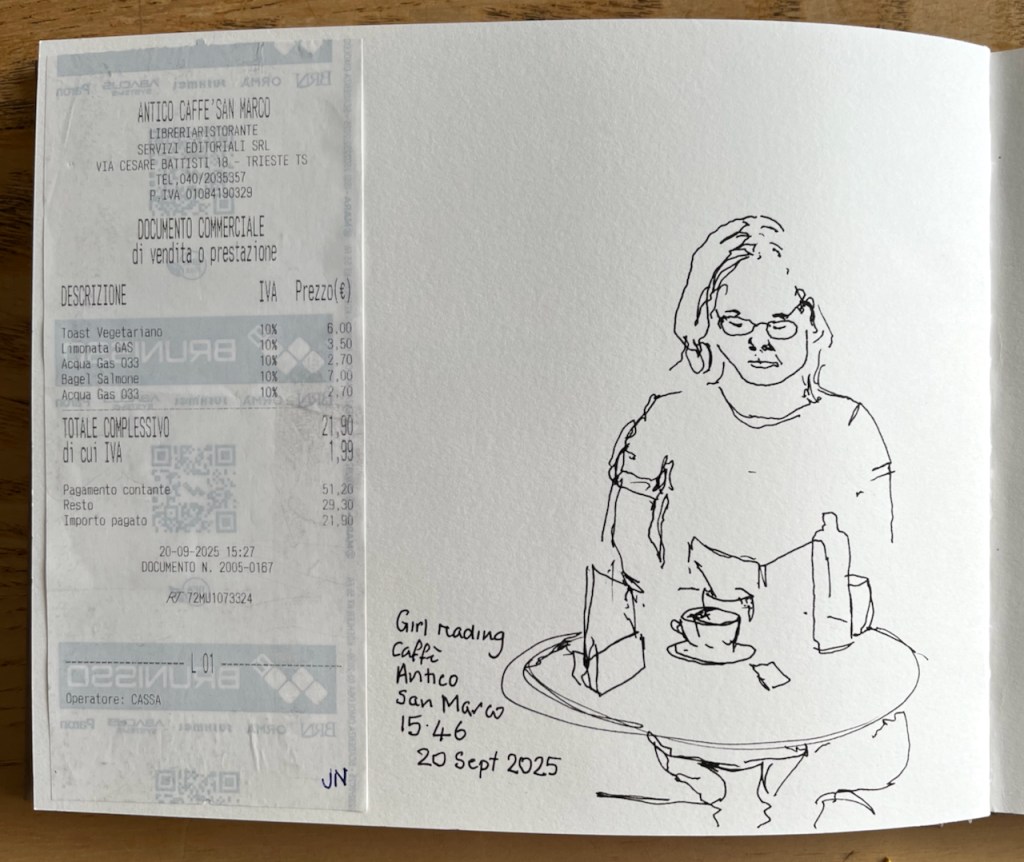 ANTICO CAFFE'SAN MARCO
LIBRERIARISTORANTE
SERVIZI EDITORIALI SRL
VIA CESARE BATTISTI 18 - TRIESTE TS
TEL,040/2035357
P.IVA 01084190329
DOCUMENTO COMMERCIALE
di vendita o prestazione
DESCRIZIONE IVA Prezzo(€)
Toast Vegetariano 10% 6,00
Limonata GAS 10% 3,50
Acqua Gas 033 10% 2,70
Bagel Salmone 10% 7,00
Acqua Gas 033 10% 2,70
TOTALE COMPLESSIVO 21,90
di cui IVA 1,99
Pagamento contante 51,20
Resto 29,30
Importo pagato 21,90
20-09-2025 15:27
DOCUMENTO N. 2005-0167
RT 72MU1073324
L 01
BRUNISSO
Operatore: CASSA
JN
Girl reading
Caffè
Antico
San Marco
15.46
20 Sept 2025